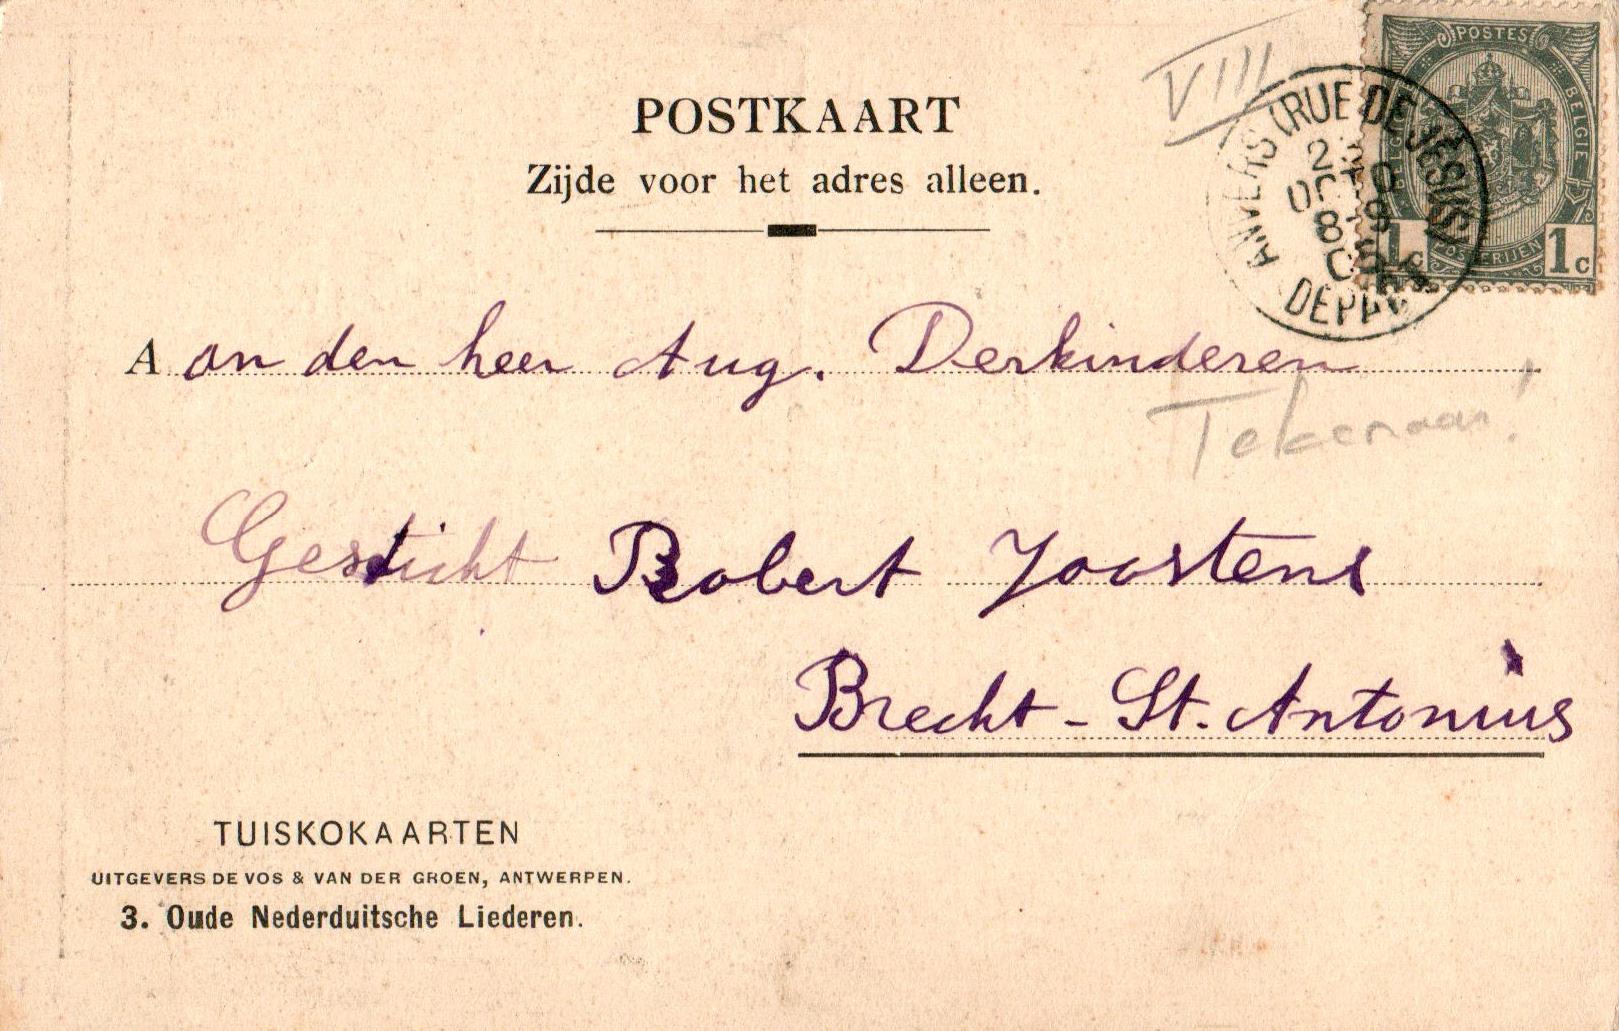 POSTKAART
Zijde voor het adres alleen.
VIII
POSTES
BELGIE
POSTERIJEN
1c 1c
ANVERS (RUE DE JÉSUS)
DÉPART
Aan den heer Aug. Derkinderen
Tekenaar!
Gesticht Robert Joostens
Brecht - St. Antonius
TUISKOKAARTEN
UITGEVERS DE VOS & VAN DER GROEN, ANTWERPEN.
3. Oude Nederduitsche Liederen.